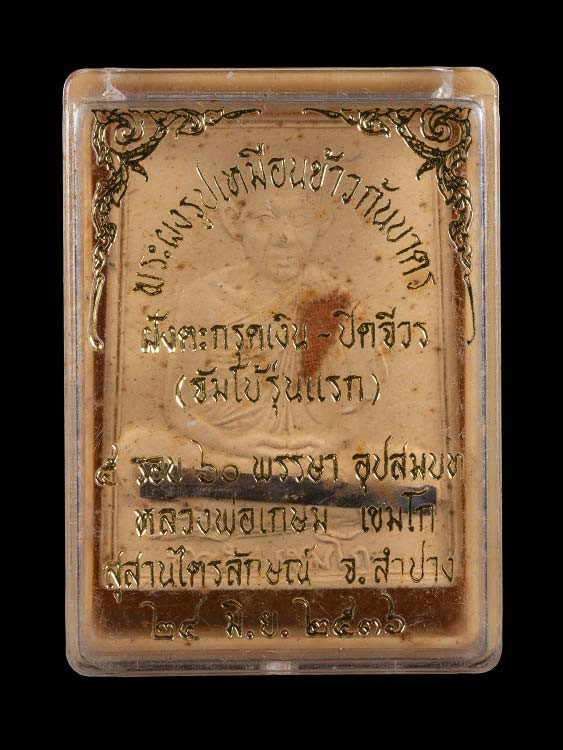 พระผงรูปเหมือนข้าวก้นบาตร
ฝังตะกรุดเงิน - ปิดจีวร
(จัมโบ้รุ่นแรก)
๕ รอบ ๖๐ พรรษา อุปสมบท
หลวงพ่อเกษม เขมโก
สุสานไตรลักษณ์ จ.ลำปาง
๒๔ มิ.ย. ๒๕๓๖